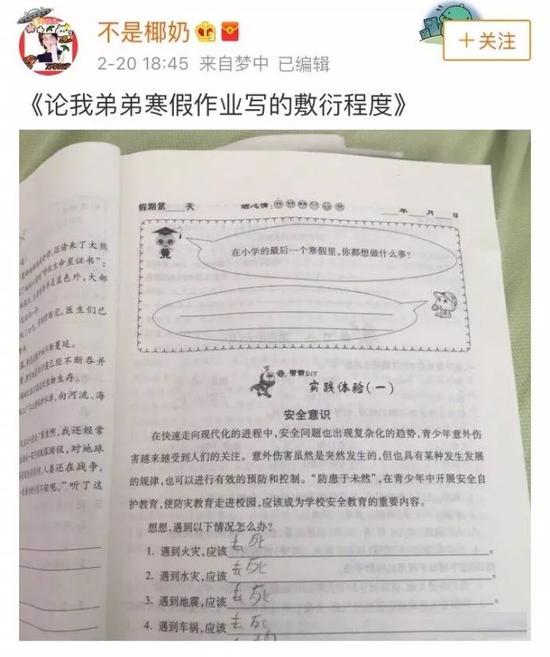 不是椰奶
2-20 18:45 来自梦中 已编辑
+关注
《论我弟弟寒假作业写的敷衍程度》
假期第 天
年 月 日
在小学的最后一个寒假里,你都想做什么事?
智普DIY
实践体验(一)
安全意识
在快速走向现代化的进程中,安全问题也出现复杂化的趋势,青少年意外伤
害越来越受到人们的关注。意外伤害虽然是突然发生的,但也具有某种发生发展
的规律,也可以进行有效的预防和控制。“防患于未然”,在青少年中开展安全自
护教育,使防灾教育走进校园,应该成为学校安全教育的重要内容。
想想,遇到以下情况怎么办?
1. 遇到火灾,应该去死。
2. 遇到水灾,应该去死。
3. 遇到地震,应该去死。
4. 遇到车祸,应该去死
还请来了大熊
是蓝色外,大部
医生们已
蔓延。
已经不断吞并
生存。
向河流、海
我还经常
对地球
人类还在战争,
”听了这